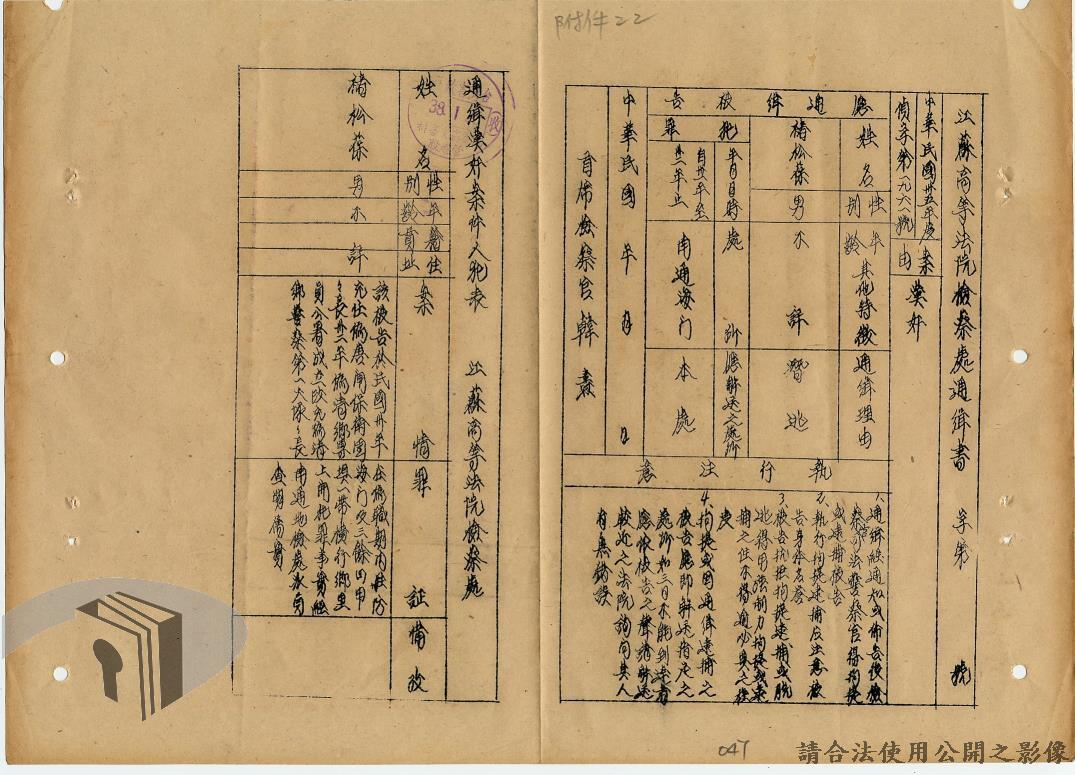 附件22
江蘇高等法院檢察處通緝書 字第 號
中華民國卅五年度
偵字第一九六號
案由
漢奸
應通緝被告
姓名
性別
年齡
其他特徵
通緝理由
褚松葆
男
不詳
潛逃
犯罪
年月日時
處所
應解送之處所
自卅年至
卅二年止
南通海门
本處
執行注意
1.通緝經通知或佈告後檢
察官司法警察官得拘提
或逮捕被告
2.執行拘提逮捕应注意被
告身体名誉
3.被告抗拒拘提逮捕或脱
逃得用強制力拘提或逮
捕之但不得逾必要之程
度
4.拘提或因通緝逮捕之
被告應即解送指定之
處所如三日不能到達者
應依被告之聲請解送
較近之法院詢問其人
有無錯誤
中華民國 年 月 日
首席檢察官韓燾
通緝漢奸案件人犯表 江蘇高等法院檢察處
姓名
性別
年齡
籍貫
住址
案情
罪証
備攷
褚松葆
男
不詳
該被告於民國卅年
充任偽唐閘保衛團
團長卅二年偽清鄉專
員公署成立改充偽清
鄉警察第一大隊隊長
在偽職期内駐防
海门及三餘四甲
垻一帶橫行鄉里
上開犯罪事實經
南通地檢處派員
查明屬實
38.1
047
請合法使用公開之影像